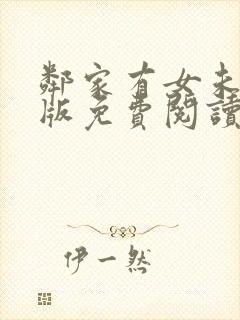 鄰家有女未
版免費閱讀
伊一然